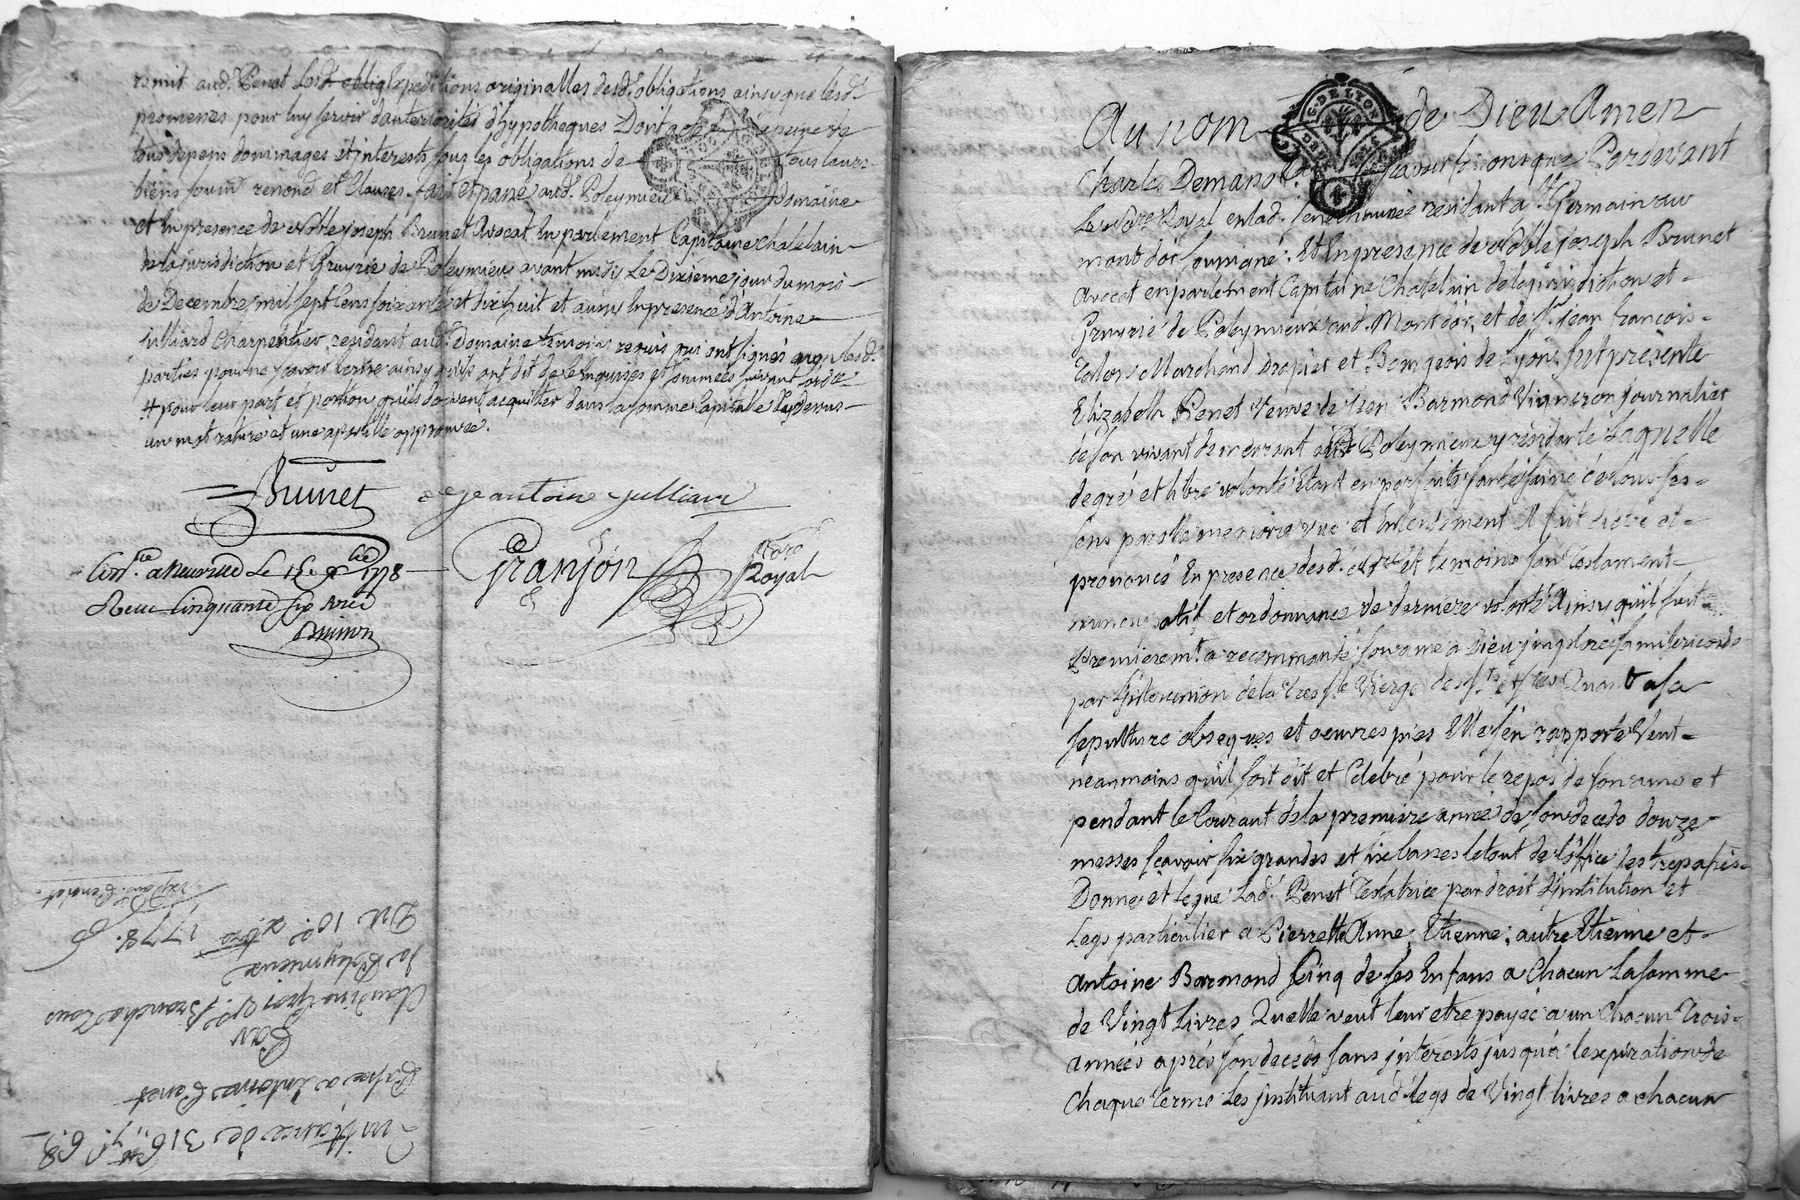 remit aud. Penet lesd. expeditions originalles desd. obligations ainsy que lesd.
promesses pour luy servir danteriorités d'hypotheques Dont acte a peine de
tous depens dommages et interests sous les obligations de tous leurs
biens soum renond et Clauses. fait et passé aud. Poleymieu Domaine
et En presence de noble joseph Brunet Avocat En parlement Capitaine chatelain
de la jurisdiction et Gruyrie de Poleymieu avant midi Le Dixième jour du mois
de Decembre mil sept Cens soixante et dix huit et aussi En presence d'Antoine
julliard Charpentier residant aud. Domaine temoins requis qui ont signés non lesd.
parties pour ne sçavoir Ecrire ainsy quils ont dit de ce Enquises et sommées suivant l'orde
# pour leur part et portion quils doivent acquitter dans la somme Capitalle Cy dessus
un mot rature et une apostille approuvée.
Brunet jeantoine julliard
Granjon Nore Royal
a neuville Le 15 Xbre 1778
Recu Cinquante six sols
Du 10e Xbre 1778.
Claudine
de Poleymieux
Par
a Antoine Penet
Quittance de 316
Au nom de Dieu Amen
Charles Demans sçavoir faisons que Pardevant
Le Nore Royal en lad. senechaussée residant a St Germain au
mont d'or soussigné. Et En presence de Noble joseph Brunet
Avocat en parlement Capitaine Chatelain de la jurisdiction et
Gruyrie de Poleymieux aud. Mont d'or, et de Sr. jean françois
Marchand drapier et Bourgeois de Lyon, fut presente
Elizabeth Penet Veuve de jean Barmond Vigneron journalier
de son vivant demeurant aud. Poleymieux y residante Laquelle
de gré et libre volonté Etant en parfaite santé saine de tous ses
sens parolle memoire vue et Entendement A fait dicté et
prononcé En presence desd. Nore et temoins son testament
nuncupatif et ordonnance de derniere volonté Ainsy qu'il suit
Premieremt. a recommandé son ame a Dieu jmploré sa misericorde
par l'intercession de la tres Ste Vierge des Sts et Stes Quant a sa
sepulture obseques et oeuvres pies Elle s'en rapporte Veut
neanmoins quil soit dit et Celebré pour le repos de son ame et
pendant le Courant de la premiere année de son decedes douze
messes sçavoir six grandes et six basses le tout de l'office des trepassés
Donne et legue Lad. Penet Testatrice par droit d'jnstitution et
Legs particulier a Pierrette Anne, Etienne, autre Etienne et
Antoine Barmond Cinq de ses Enfans a Chacun La somme
de Vingt Livres Quelle veut leur etre payée a un Chacun Trois
années aprés son decedes sans jnterests jusqu'a l'expiration de
Chaque terme Les jnstituant aud. legs de Vingt livres a chacun